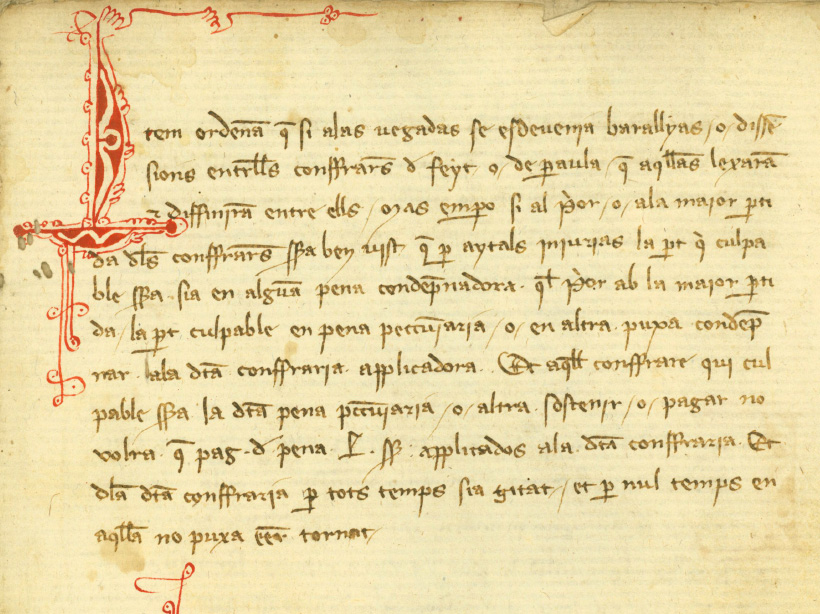 Item ordenā q̄ si alas uegadas se esdeuenia barallyas / o / dissē
sions entrells conffrars d feyt o / de paraula / q̄ aqlls lexarā
⁊ diffinirā entre ells / mas empo si al p̄or / o / ala maior pti
da dls conffrars ssa ben vist q̄ p aytals iniurias la pt q̄ culpa
ble ssa · sia en alguā pena condēpnadora · ql p̄or ab la maior pti
da / la pt culpable en pena peccūiaria / o / en altra · puxa condēp
nar · ala dtā conffraria · applicadora · Et aqll conffrare qui cul
pable ssa la dtā pena pccūiaria / o / altra · sostenir / o / pagar no
volra · q̄ pag · d pena · L · ss · applicados ala dtā conffraria · Et
dla dtā conffraria p tots temps sia gitat / et p nul temps en
aqlla no puxa eer tornat /